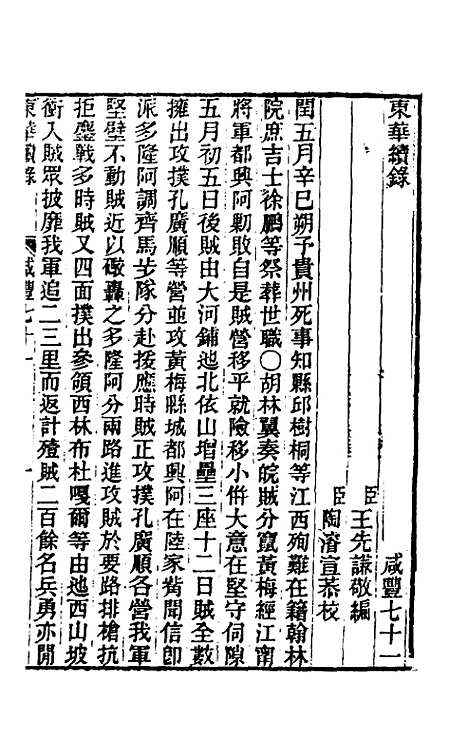 東華續錄
咸豐七十一
臣王先謙敬編
臣陶濬宣恭校
閏五月辛巳朔予貴州死事知縣邱樹桐等江西殉難在籍翰林
院庶吉士徐鵬等祭葬世職○胡林翼奏皖賊分竄黃梅經江甯
將軍都興阿勦敗自是賊營移平就險移小倂大意在堅守伺隙
五月初五日後賊由大河鋪迆北依山增壘三座十二日賊全數
擁出攻撲孔廣順等營並攻黃梅縣城都興阿在陸家觜聞信卽
派多隆阿調齊馬步隊分赴援應時賊正攻撲孔廣順各營我軍
堅壁不動賊近以礮轟之多隆阿分兩路進攻賊於要路排槍抗
拒鏖戰多時賊又四面撲出參領西林布杜嘎爾等由迆西山坡
衝入賊眾披靡我軍追二三里而返計殱賊二百餘名兵勇亦閒
東華續錄 咸豐七十一 一